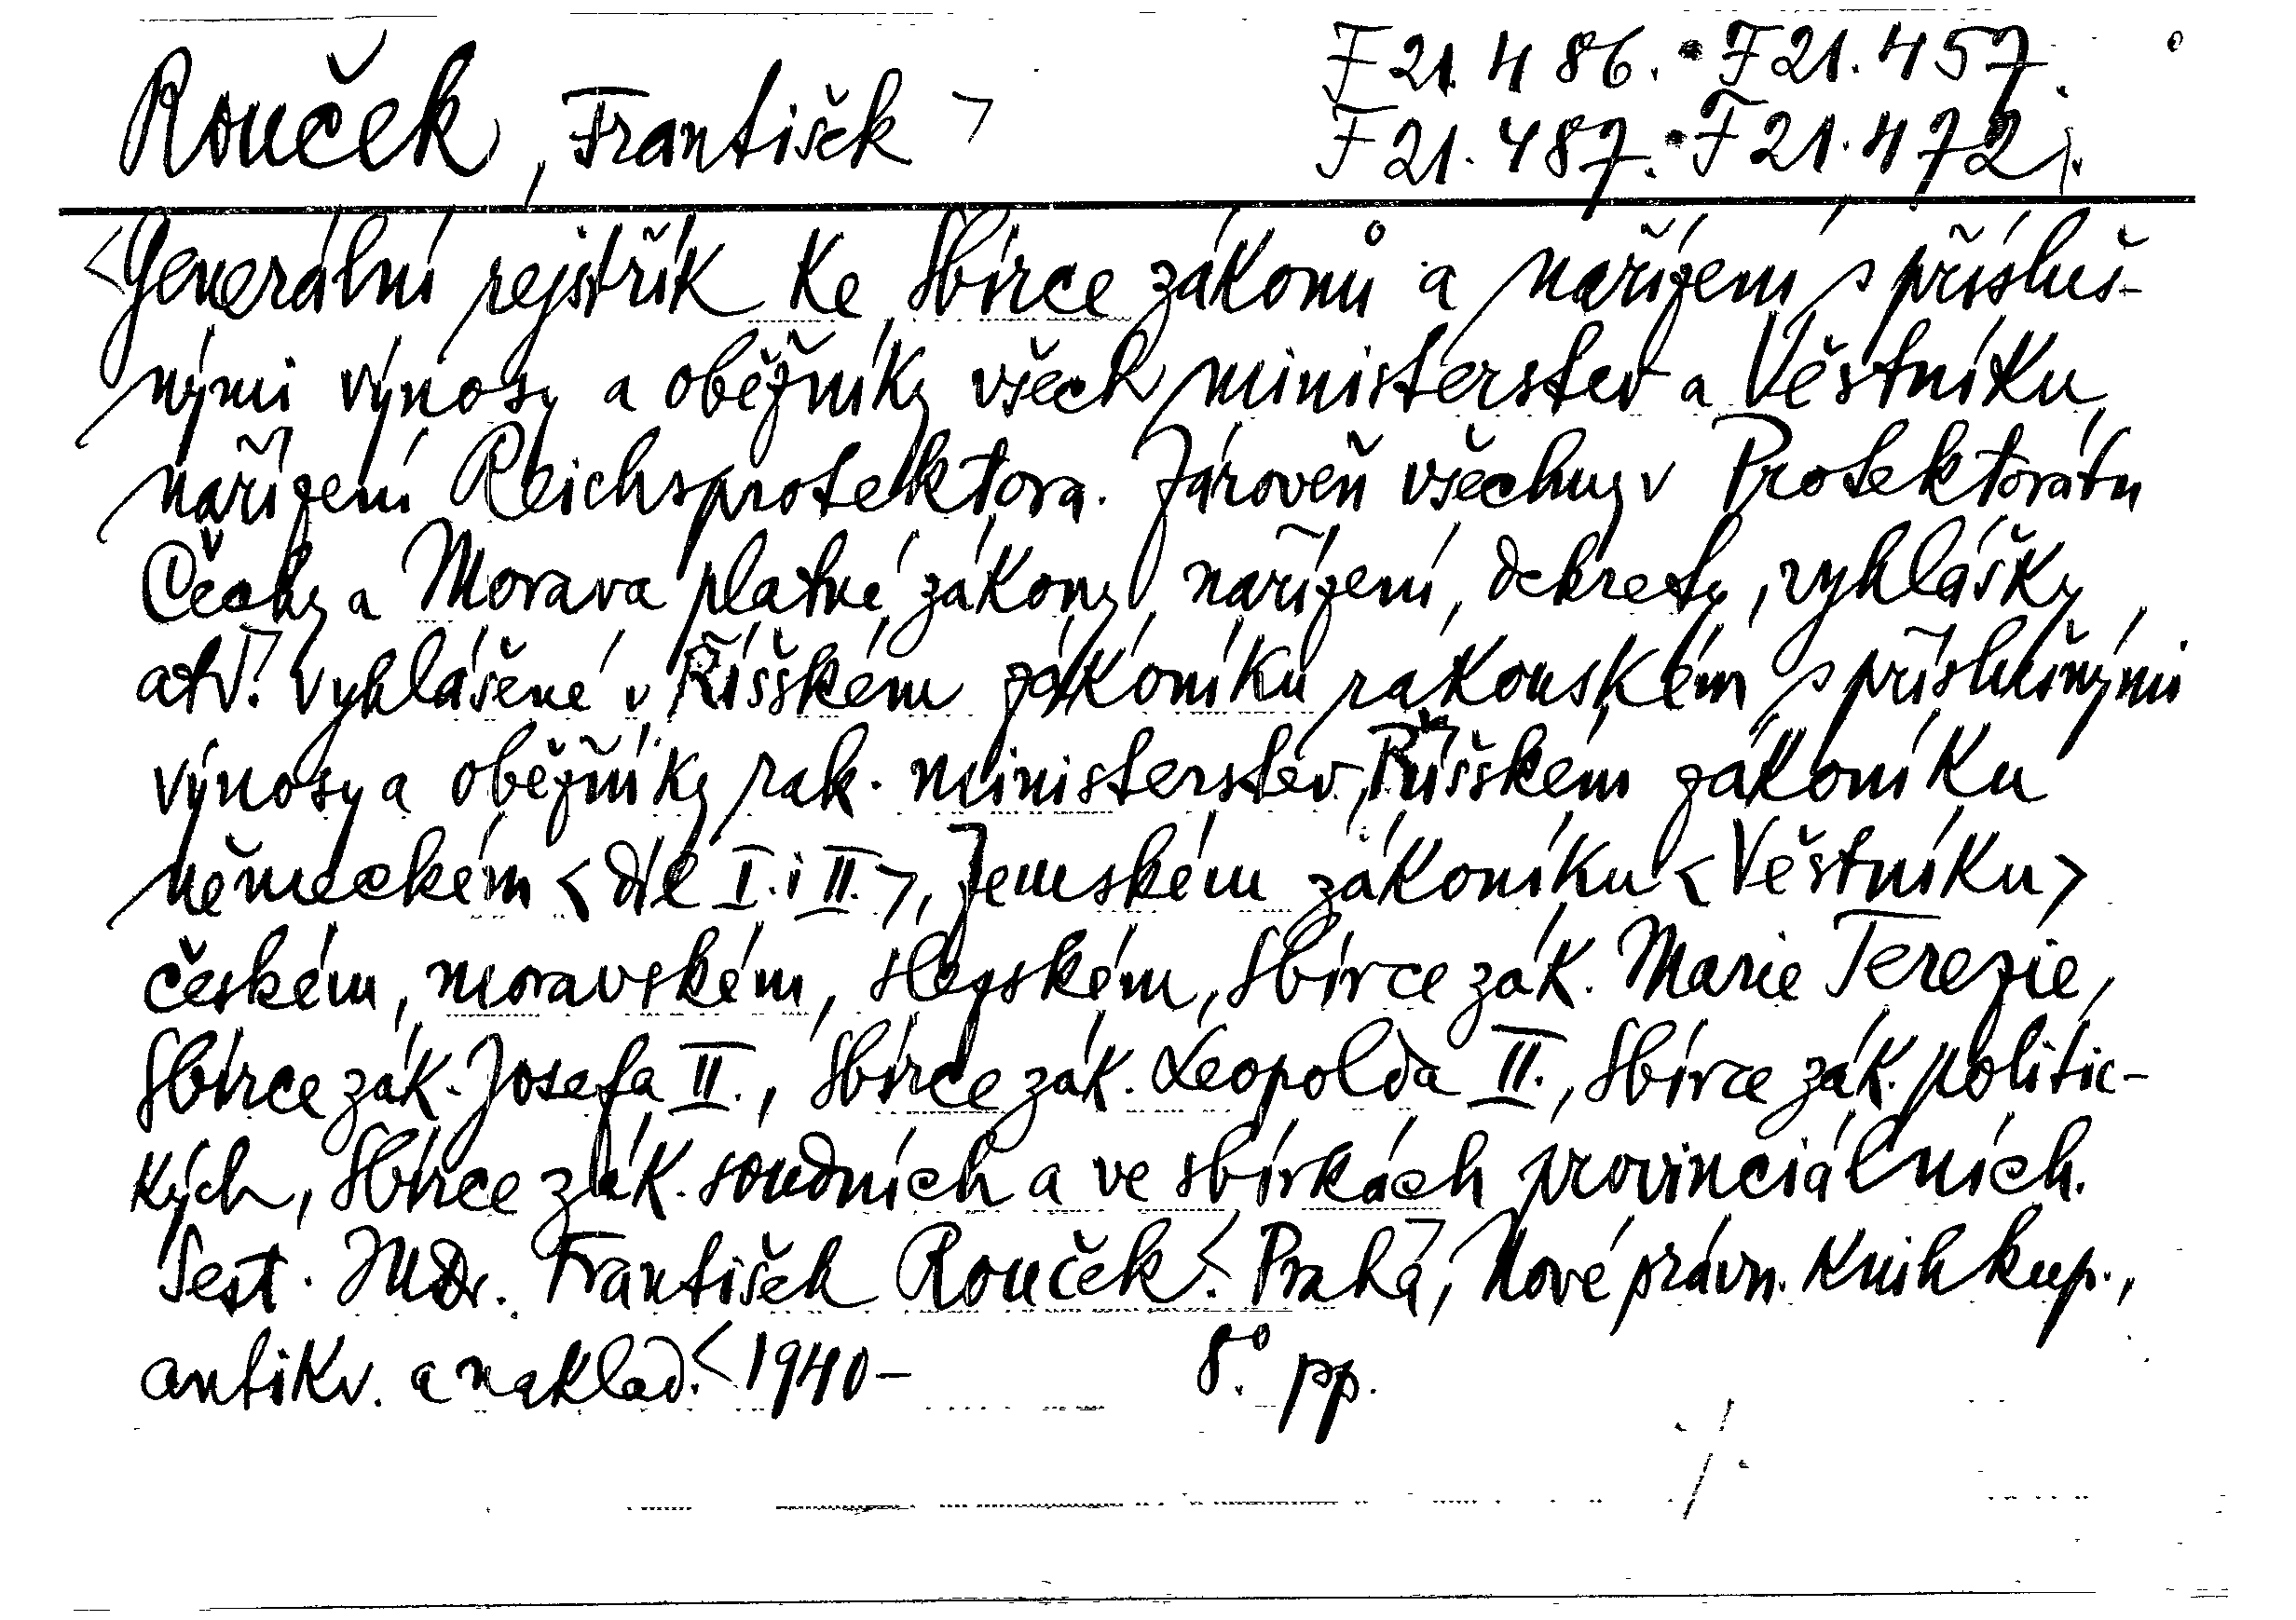 Rouček, František > F 21.486. • F 21.457.
F 21.487. • F 21.472.
<Generální rejstřík ke Sbírce zákonů a nařízení s přísluš-
nými výnosy a oběžníky všech ministerstev a Věstníku
nařízení Reichsprotektora. Zároveň všechny v Protektorátu
Čechy a Morava platné zákony, nařízení, dekrety, vyhlášky
atd. vyhlášené v Říšském zákoníku rakouském s příslušnými
výnosy a oběžníky rak. ministerstev, Říšském zákoníku
německém <díl I. i II.>, Zemském zákoníku <Věstníku>
českém, moravském, slezském, Sbírce zák. Marie Terezie,
Sbírce zák. Josefa II., Sbírce zák. Leopolda II., Sbírce zák. politic-
kých, Sbírce zák. soudních a ve sbírkách provinciálních.
Sest. JUDr. František Rouček<. Praha, Nové právn. knihkup.,
antikv. a naklad.< 1940- 8° pp.
./.